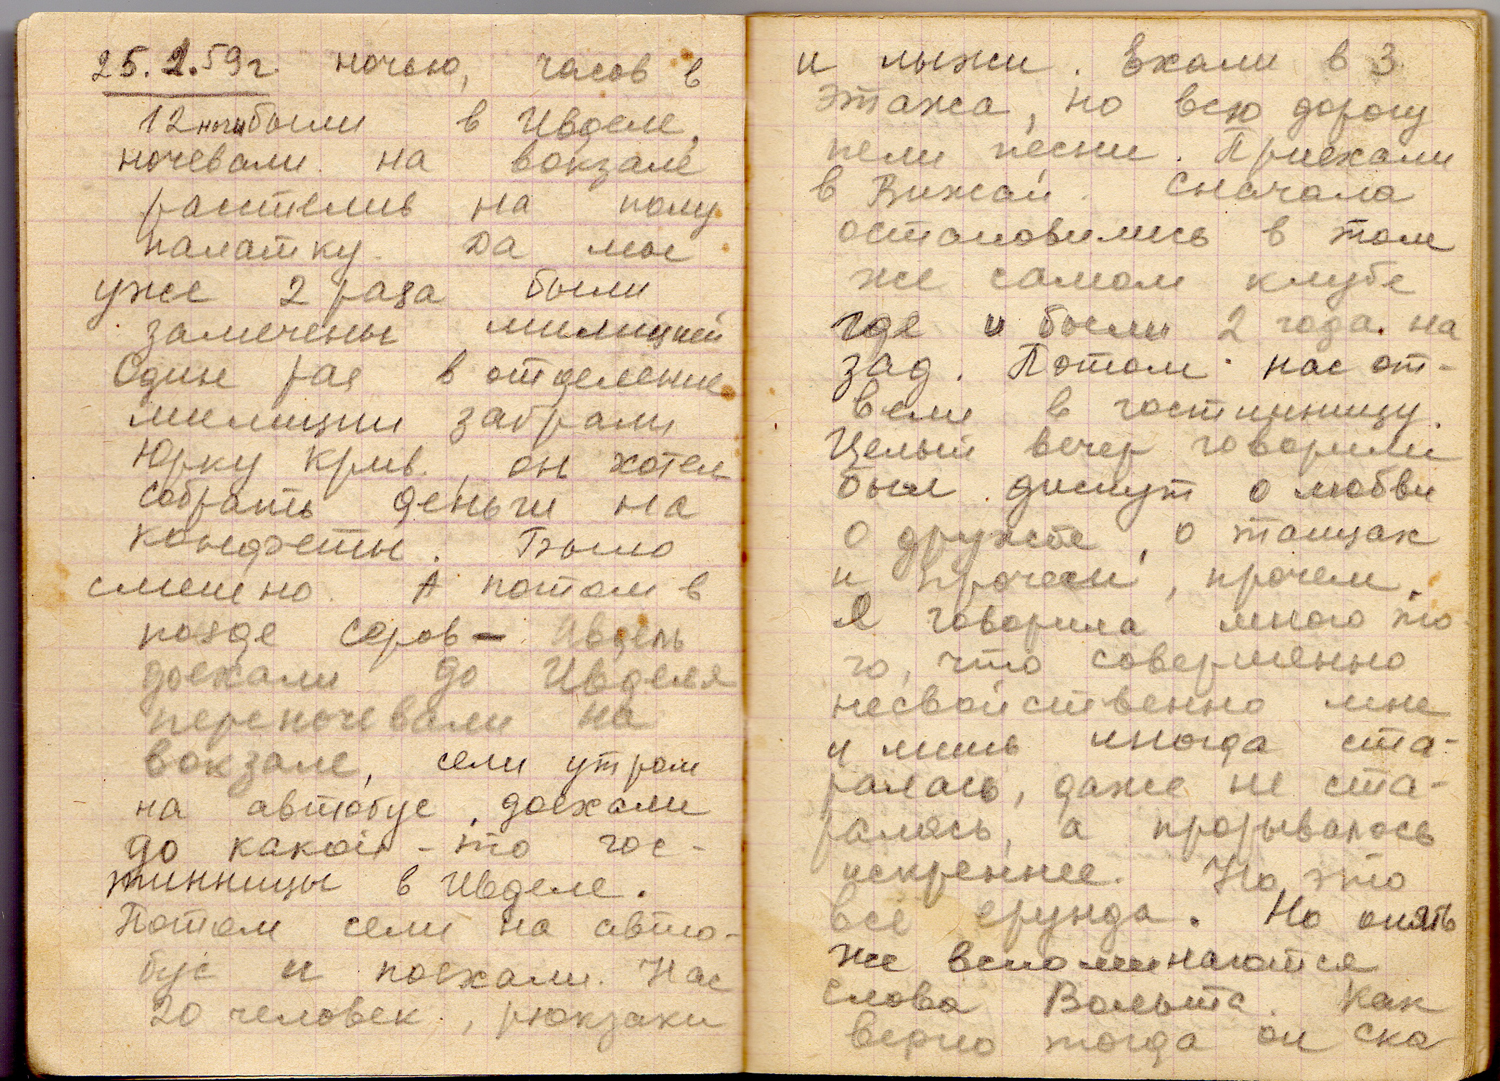 25.1.59г. ночью, часов в
12 ночи были в Ивделе,
ночевали на вокзале
расстелив на полу
палатку. Да мы
уже 2 раза были
замечены милицией
Один раз в отделение
милиции забрали
Юрку Крив., он хотел
собрать деньги на
конфеты. Было
смешно. А потом в
поезде Серов - Ивдель
доехали до Ивделя
переночевали на
вокзале, сели утром
на автобус, доехали
до какой-то гос-
тинницы в Ивделе.
Потом сели на авто-
бус и поехали. Нас
20 человек, рюкзаки
и лыжи. Ехали в 3
этажа, но всю дорогу
пели песни. Приехали
в Вижай. Сначала
остановились в том
же самом клубе
где и были 2 года на
зад. Потом нас от-
вели в гостинницу.
Целый вечер говорили
был диспут о любви
о дружбе, о танцах
и прочем, прочем.
Я говорила много то-
го, что совершенно
несвойственно мне
и лишь иногда ста-
ралась, даже не ста-
ралась, а прорывалось
искреннее. Но это
всё ерунда. Но опять
же вспоминаются
слова Вольта. Как
верно тогда он ска-